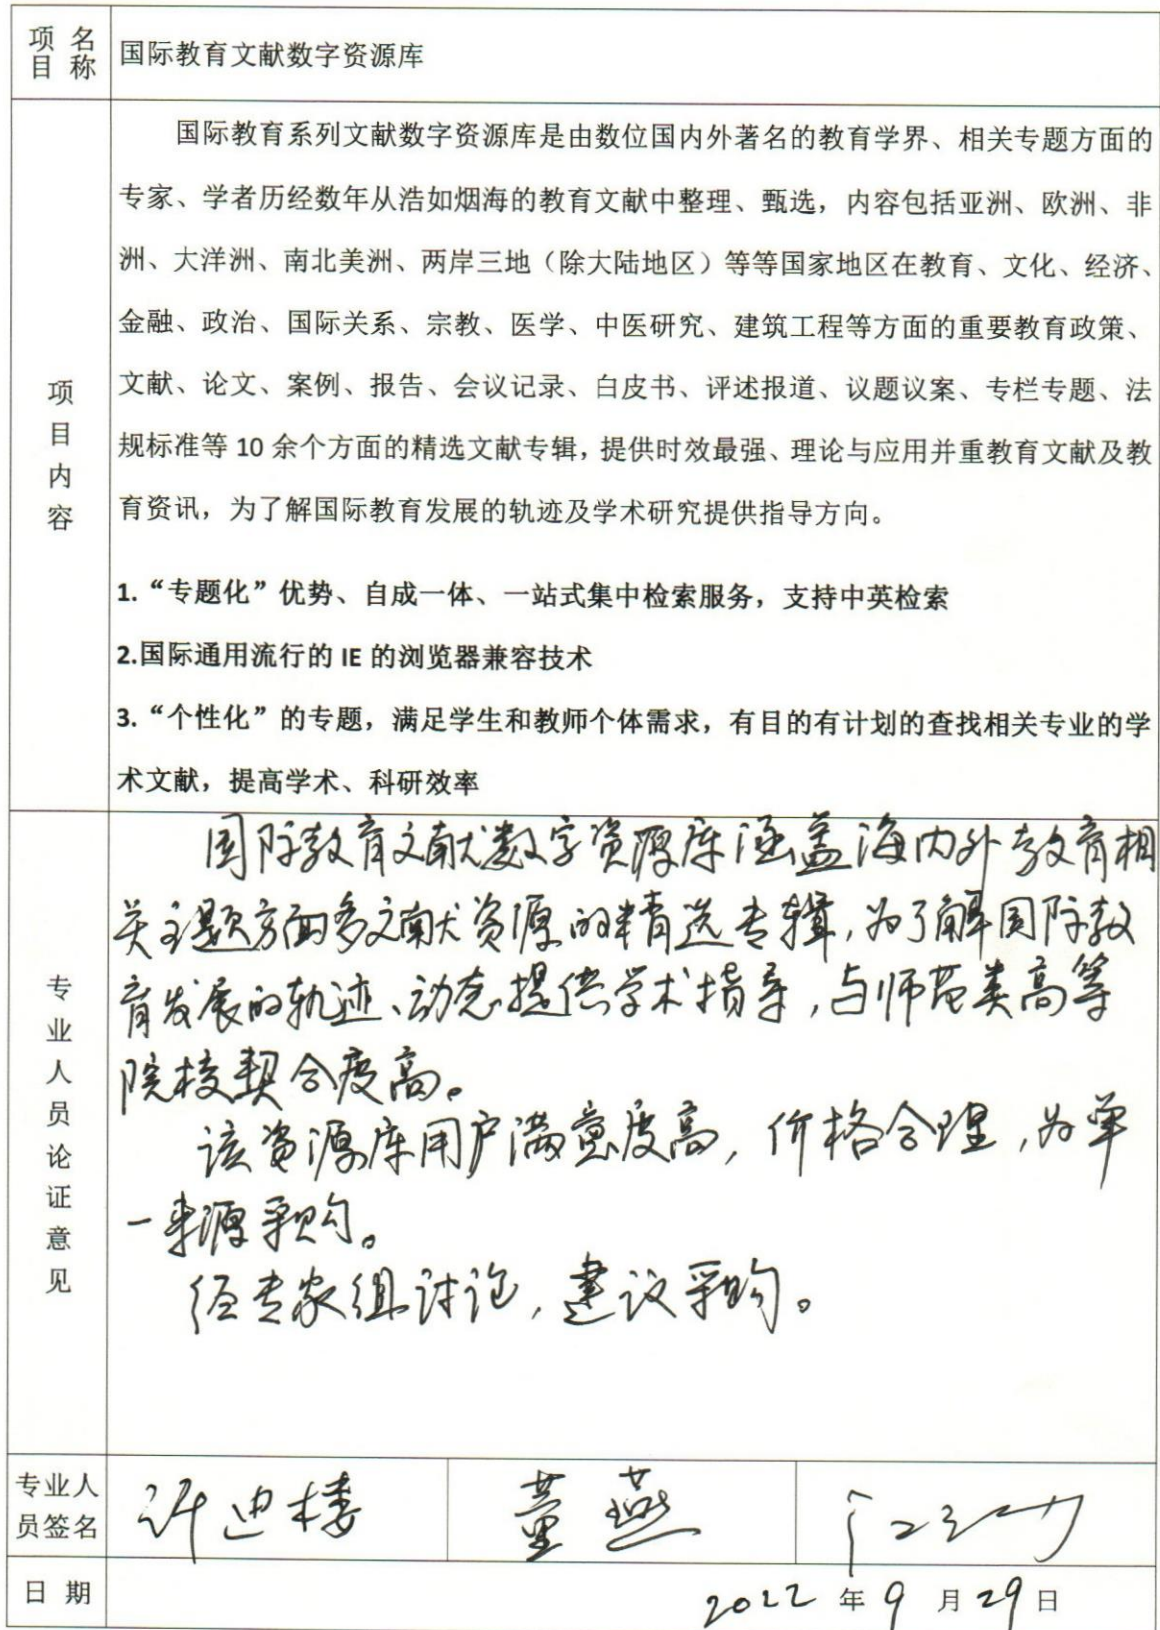 项目名称 国际教育文献数字资源库
国际教育系列文献数字资源库是由数位国内外著名的教育学界、相关专题方面的
专家、学者历经数年从浩如烟海的教育文献中整理、甄选，内容包括亚洲、欧洲、非
洲、大洋洲、南北美洲、两岸三地（除大陆地区）等等国家地区在教育、文化、经济、
金融、政治、国际关系、宗教、医学、中医研究、建筑工程等方面的重要教育政策、
文献、论文、案例、报告、会议记录、白皮书、评述报道、议题议案、专栏专题、法
规标准等 10 余个方面的精选文献专辑，提供时效最强、理论与应用并重教育文献及教
育资讯，为了解国际教育发展的轨迹及学术研究提供指导方向。
项目内容
1.“专题化”优势、自成一体、一站式集中检索服务，支持中英检索
2.国际通用流行的 IE 的浏览器兼容技术
3.“个性化”的专题，满足学生和教师个体需求，有目的有计划的查找相关专业的学
术文献，提高学术、科研效率
专业人员论证意见
国际教育文献数字资源库涵盖海内外教育相
关主题方面多文献资源的精选专辑，为了解国际教
育发展的轨迹、动态提供学术指导，与师范类高等
院校契合度高。
该资源库用户满意度高，价格合理，为单
一来源采购。
经专家组讨论，建议采购。
专业人员签名 许迪楼 董燕
日期 2022 年 9 月 29 日